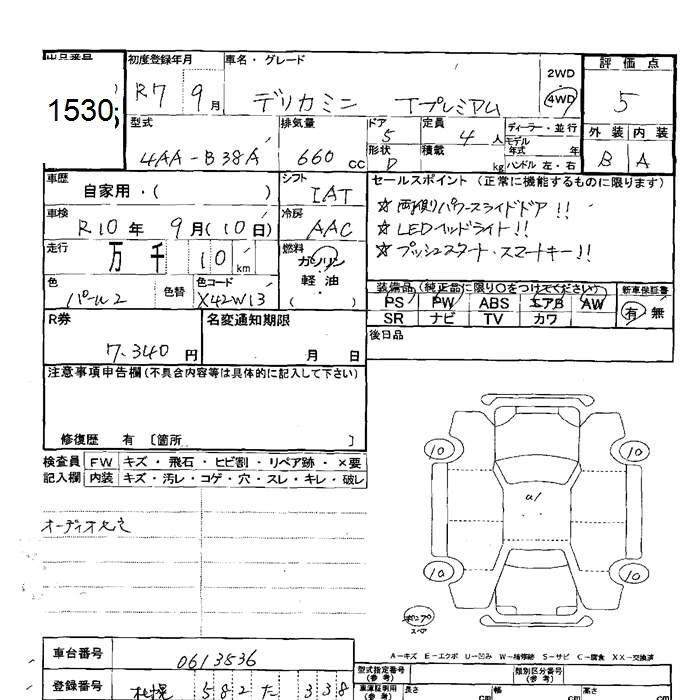 出品番号 初度登録年月 車名・グレード 評価点
1530; R7 9月 デリカミニ Tプレミアム 2WD 4WD 5
型式 排気量 ドア 定員 ディーラー・並行 外装 内装
4AA-B38A 660cc 5 4人 モデル年式 年 B A
形状 D 積載 kg ハンドル 左・右
車歴 シフト セールスポイント (正常に機能するものに限ります)
自家用・( ) IAT ☆両側パワースライドドア!!
車検 冷房 ☆LEDヘッドライト!!
R10年 9月(10日) AAC ☆プッシュスタート・スマートキー!!
走行 燃料
万 千 10km ガソリン
軽油
( )
色 色替 色コード 装備品 (純正品に限り○をつけてください) 新車保証書
パール2 X42W13 PS PW ABS エアB AW 有 無
SR ナビ TV カワ
R券 名変通知期限 後日品
7.340円 月 日
注意事項申告欄(不具合内容等は具体的に記入して下さい)
修復歴 有 [箇所 ]
検査員 FW キズ・飛石・ヒビ割・リペア跡・×要
記入欄 内装 キズ・汚レ・コゲ・穴・スレ・キレ・破レ
10 10
a1
オーディオ
10 10
スペア
A-キズ E-エクボ U-凹み W-補修跡 S-サビ C-腐食 XX-交換済
車台番号 0613536 型式指定番号(参考) 類別区分番号(参考)
登録番号 札幌 582 た 338 車庫証明用(参考) 長さ cm 幅 cm 高さ cm